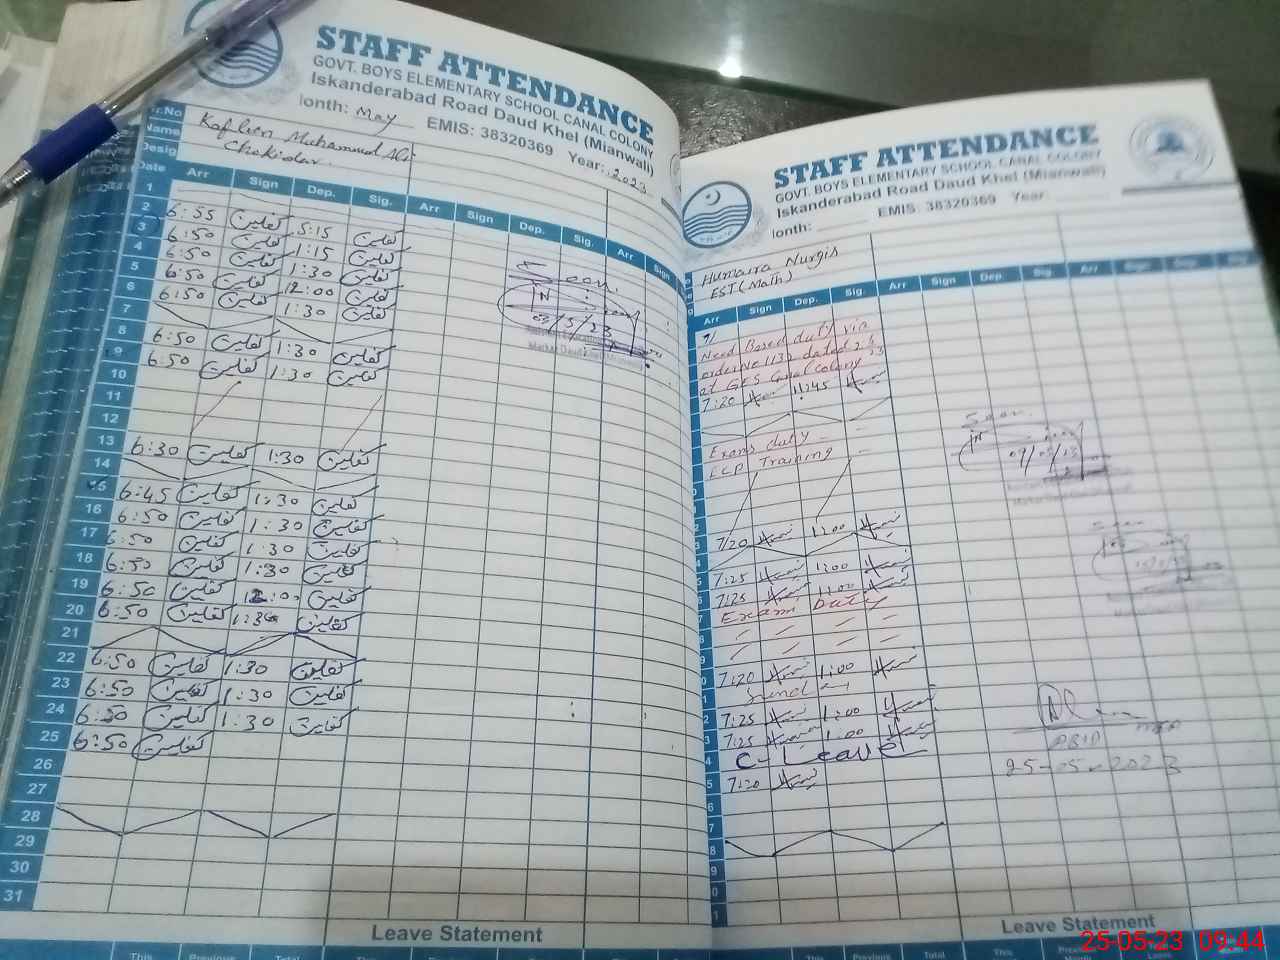 STAFF ATTENDANCE
GOVT. BOYS ELEMENTARY SCHOOL CANAL COLONY
Iskanderabad Road Daud Khel (Mianwali)
onth: May EMIS: 38320369 Year: 2023
r.No
Name Muhammad Ali
Desig Chokidar
Date Arr Sign Dep. Sig. Arr Sign Dep. Sig. Arr Sign
1
2 6:55 کفلین 5:15 کفلین
3 6:50 کفلین 1:15 کفلین
4 6:50 کفلین 1:30 کفلین
5 6:50 کفلین 12:00 کفلین
6 6:50 کفلین 1:30 کفلین
7
8 6:50 کفلین 1:30 کفلین
9 6:50 کفلین 1:30 کفلین
10
11
12
13 6:30 کفلین 1:30 کفلین
14
15 6:45 کفلین 1:30 کفلین
16 6:50 کفلین 1:30 کفلین
17 6:50 کفلین 1:30 کفلین
18 6:50 کفلین 1:30 کفلین
19 6:50 کفلین 12:00 کفلین
20 6:50 کفلین 1:30 کفلین
21
22 6:50 کفلین 1:30 کفلین
23 6:50 کفلین 1:30 کفلین
24 6:50 کفلین 1:30 کفلین
25 6:50 کفلین
26
27
28
29
30
31
Leave Statement
This Previous Total This Previous Total
STAFF ATTENDANCE
GOVT. BOYS ELEMENTARY SCHOOL CANAL COLONY
Iskanderabad Road Daud Khel (Mianwali)
onth: EMIS: 38320369 Year
Humaira Nurgis
EST (Math)
Arr Sign Dep. Sig. Arr Sign Dep. Sig. Arr Sign
Need Based duty via
order No 1132 dated
at GES Canal colony
7:20 11:45
Exam duty
ECP Training
7:20 1:00
7:25 1:00
7:25 1:00
Exam Duty
7:20 1:00
Sunday
7:25 1:00
7:25 1:00
C-Leave
7:20
25-05-2023
Leave Statement
This Previous Total This Total
25-05-23 09:44